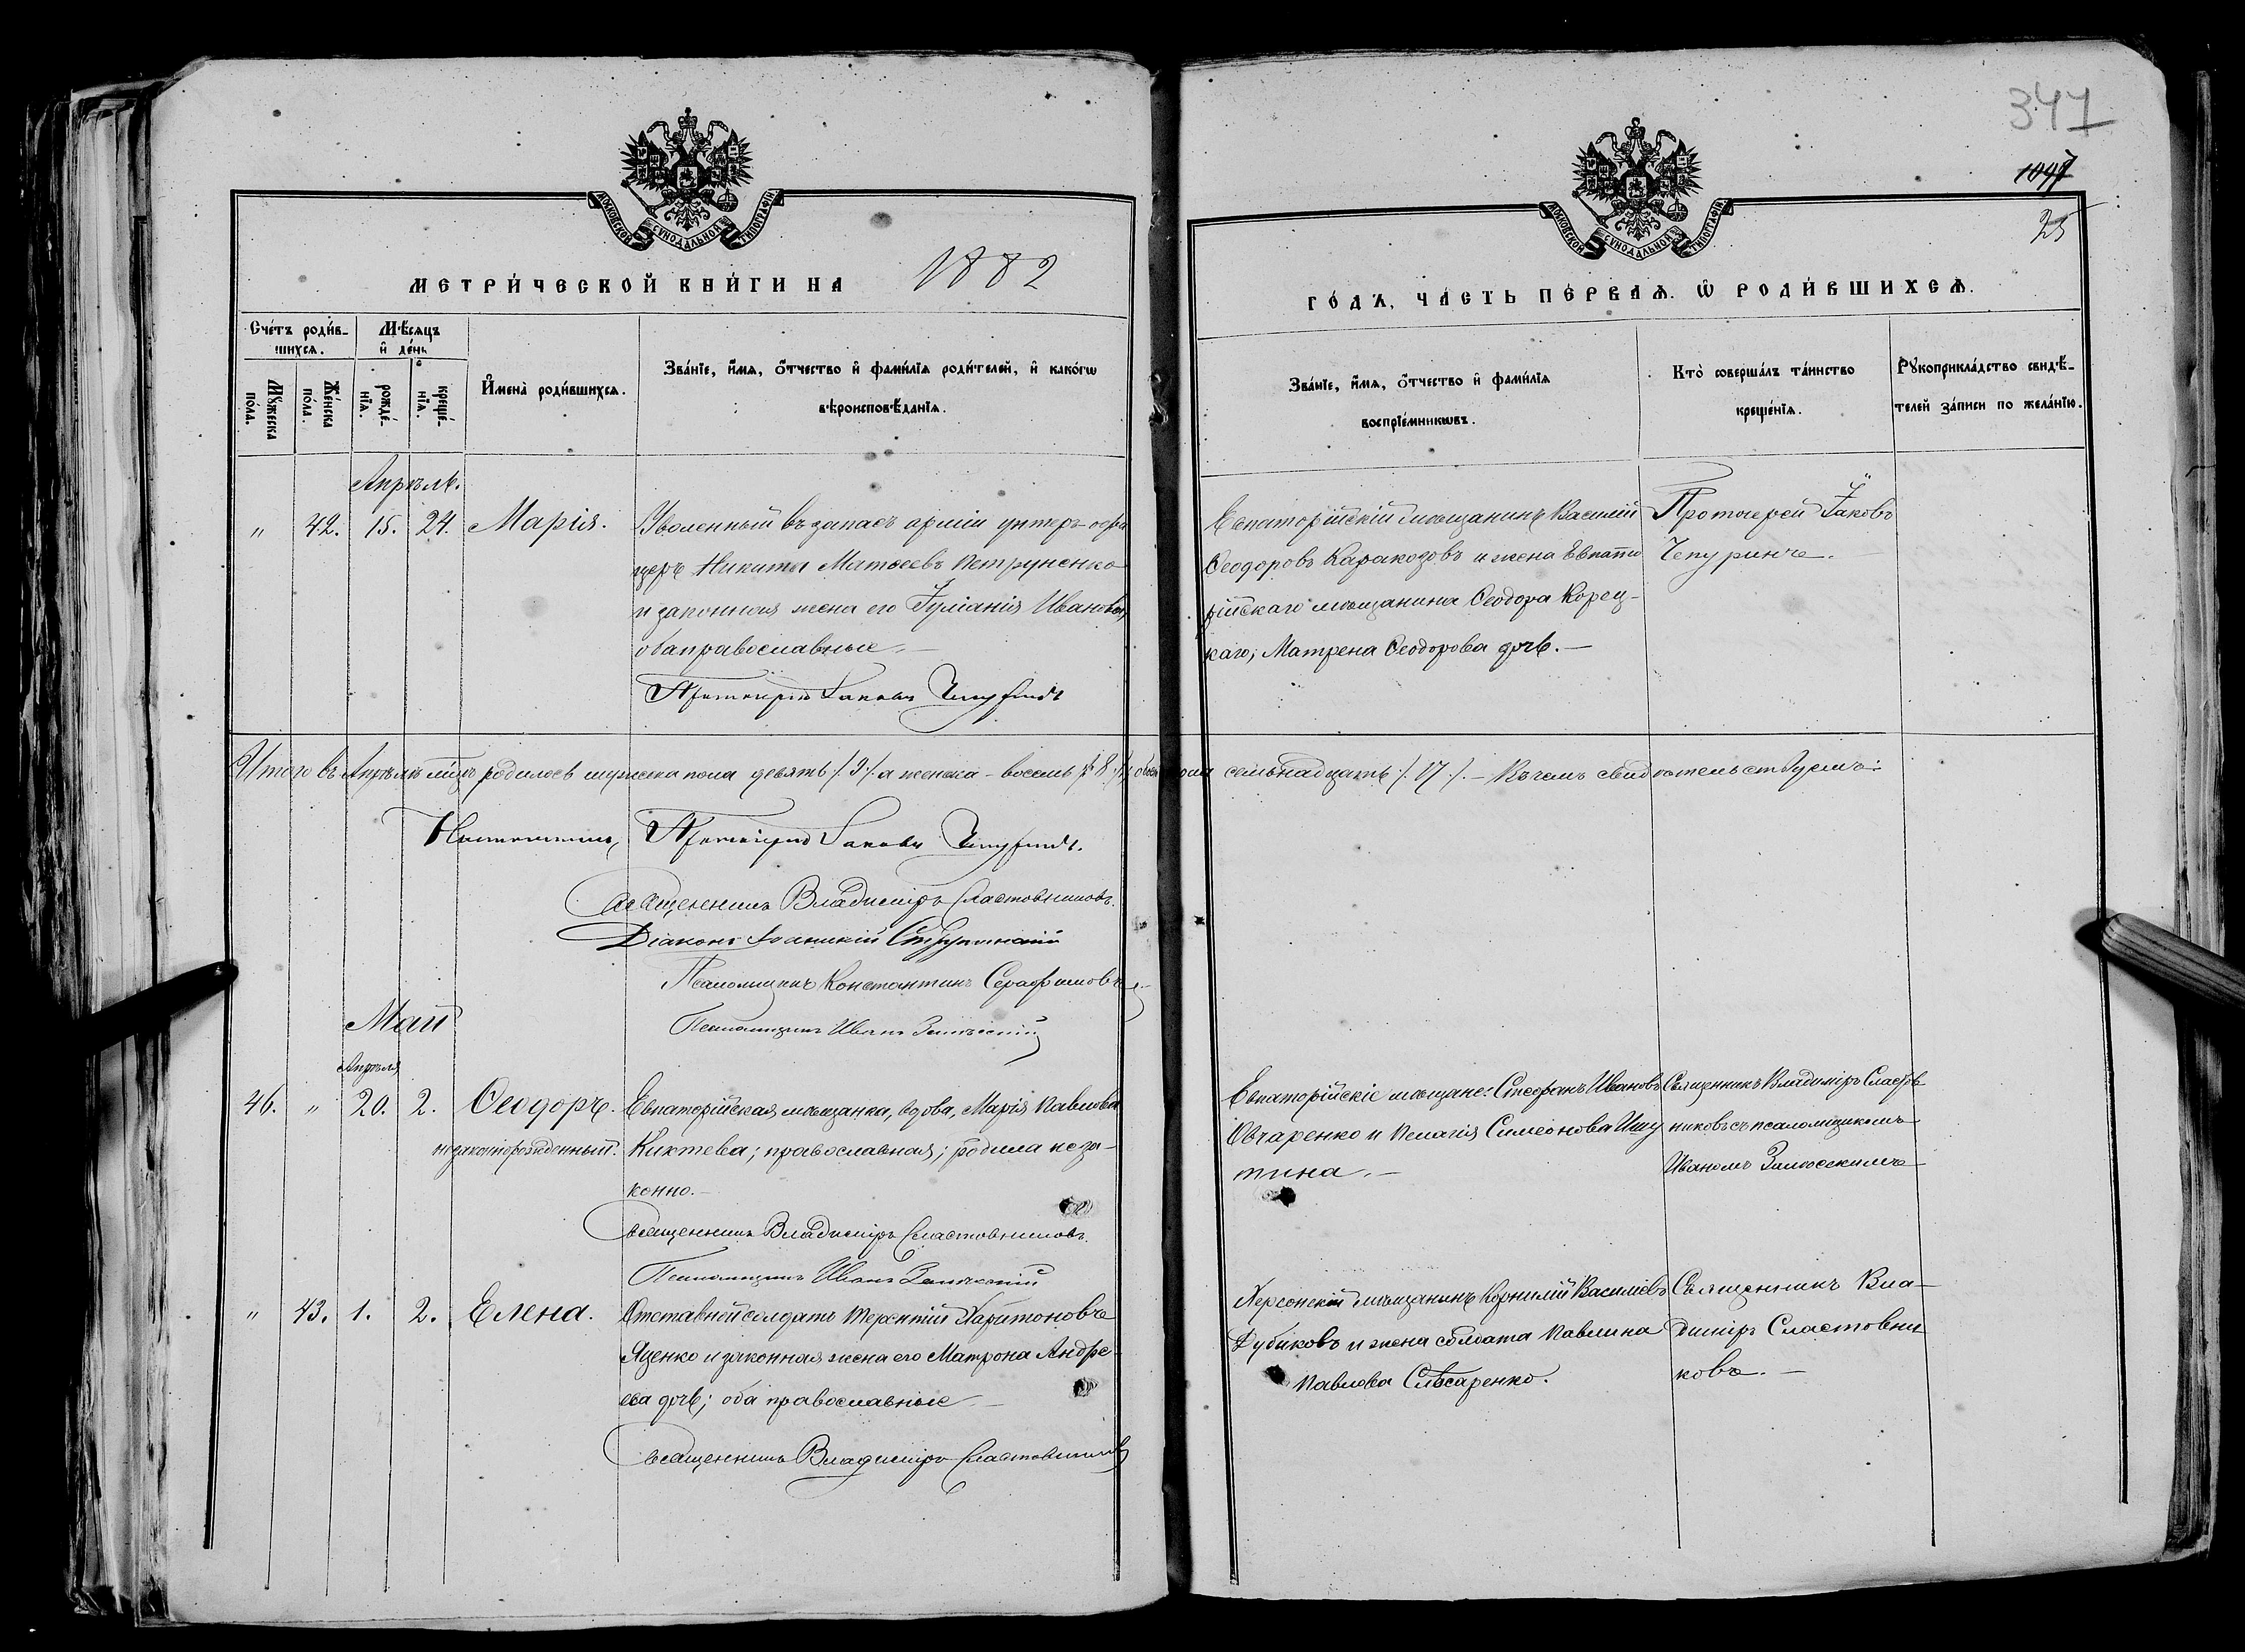 347
1047
25
МОСКОВСКОЙ СѴНОДАЛЬНОЙ ТИПОГРАФІИ
МОСКОВСКОЙ СѴНОДАЛЬНОЙ ТИПОГРАФІИ
МЕТРИ́ЧЕСКОЙ КНИ́ГИ НА 1882
ГО́ДЪ, ЧА́СТЬ ПЕ́РВАѦ. Ѽ РОДИ́ВШИХСѦ.
Сче́тъ роди́в-
шихсѧ.
Мѣ́сѧцъ
и҆ де́нь
Мꙋ́жеска
по́ла.
Же́нска
по́ла.
рожде́-
нїѧ.
креще́-
нїѧ.
И҆мена̀ роди́вшихсѧ.
Зва́нїе, и҆́мѧ, ѻ҆́тчество и҆ фами́лїѧ роди́телей, и҆ како́гѡ
вѣроисповѣ́данїѧ.
Зва́нїе, и҆́мѧ, ѻ҆́тчество и҆ фами́лїѧ
воспрїе́мникѡвъ.
Кто̀ соверша́лъ та́инство
креще́нїѧ.
Рꙋкоприкла́дство свидѣ́-
телей за́писи по жела́нїю.
Апрѣль.
" 42. 15. 24. Марія. Уволенный въ запасъ арміи унтеръ-офи
церъ Никита Матѳеевъ Петруненко
и законная жена его Іуліанія Иванова,
оба православные.—
Протоіерей Іаковъ Чепуринъ
Евпаторійскій мѣщанинъ Василій
Ѳеодоровъ Каракозовъ и жена Евпато
рійскаго мѣщанина Ѳеодора Корец-
каго, Матрена Ѳеодорова дочь.—
Протоіерей Іаковъ
Чепуринъ.
Итого въ Апрѣлѣ мѣцѣ родилось мужеска пола девять /.9./. а женска - восемь /.8./. обоего пола семьнадцать /.17./.— Въ чемъ свидѣтельствуемъ:
Протоіерей Іаковъ Чепуринъ.
Священникъ Владиміръ Сластовниковъ.
Діаконъ Іоанникій
Псаломщикъ Константинъ Серафимовъ
Псаломщикъ Иванъ
Май
Апрѣля
46. " 20. 2. Ѳеодоръ. Евпаторійская мѣщанка, вдова, Марія Павлова
незаконнорожденный. Киктева; православная; родила неза-
конно.—
Священникъ Владиміръ Сластовниковъ.
Псаломщикъ Иванъ
Евпаторійскіе мѣщане: Стефанъ Ивановъ
Овчаренко и Пелагія Симеонова Ишу
тина.—
Священникъ Владиміръ Сластов
никовъ съ псаломщикомъ
Иваномъ
" 43. 1. 2. Елена. Отставной солдатъ Терентій Харитоновъ
Яценко и законная жена его Матрона Андре-
ева дочь; оба православные.—
Священникъ Владиміръ Сластовниковъ
Херсонскій мѣщанинъ Корнилій Василіевъ
Дубиковъ и жена солдата Павлина
Павлова Слѣсаренко.
Священникъ Вла-
диміръ Сластовни
ковъ.—